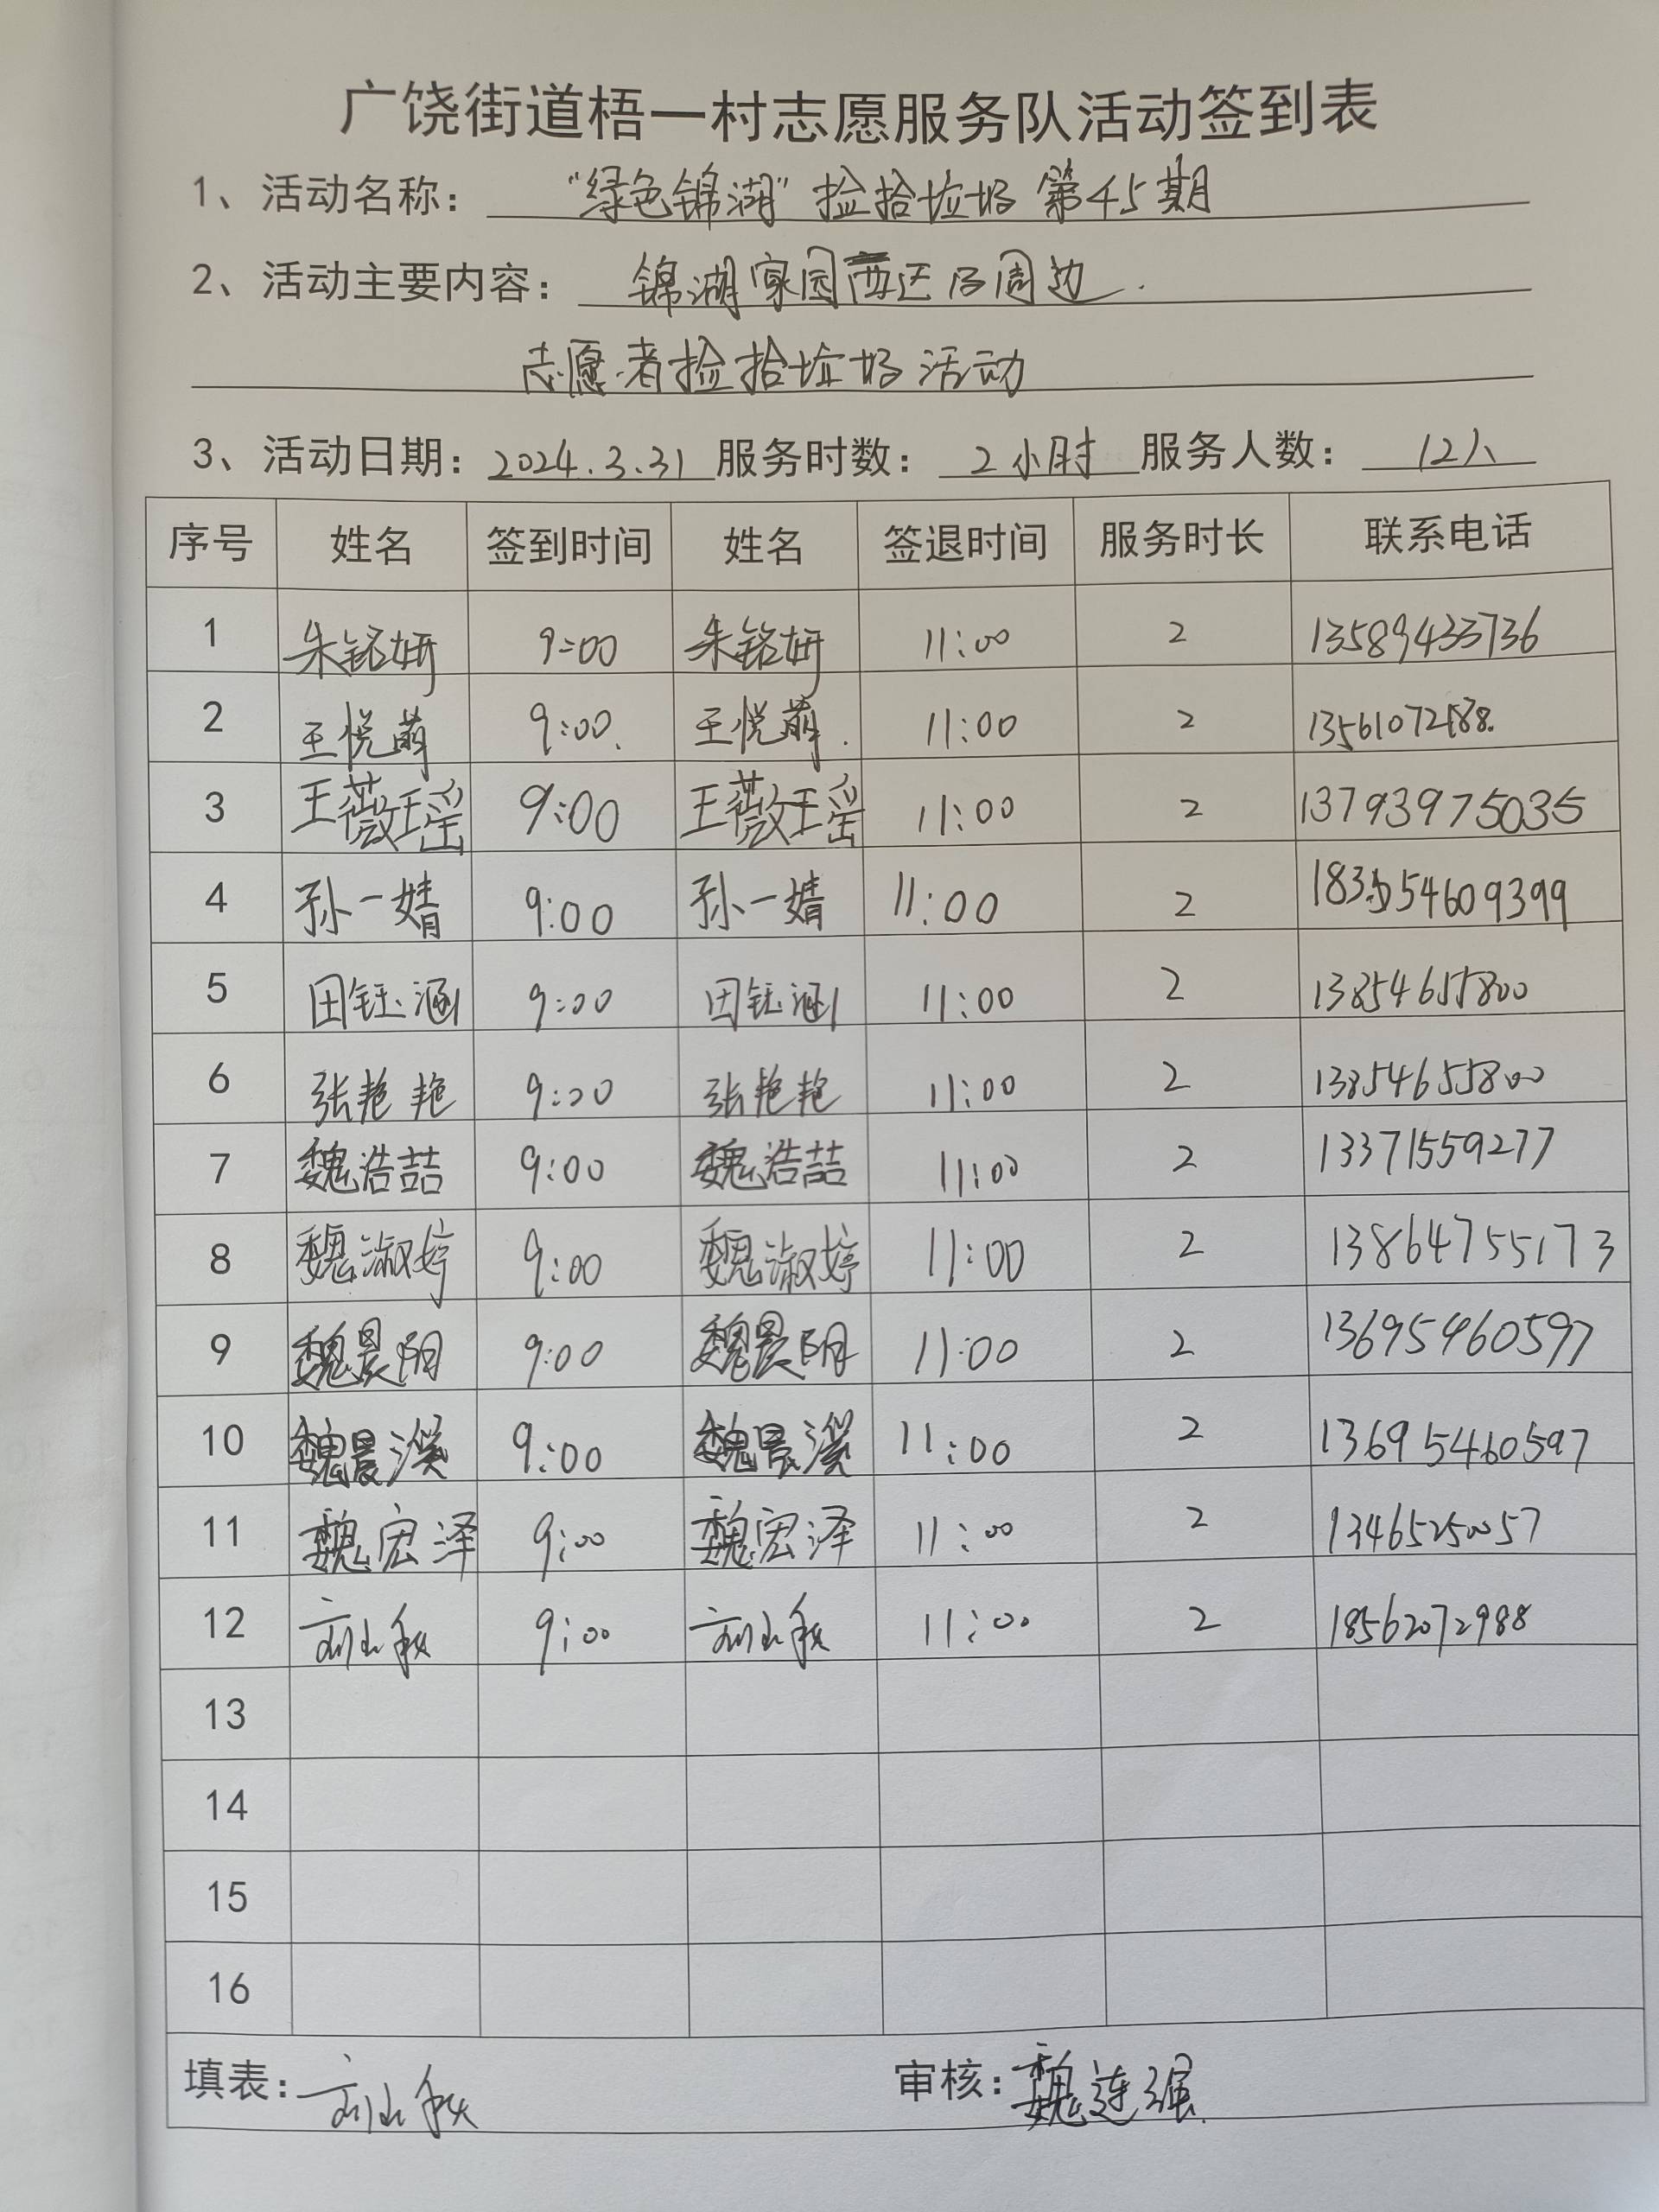 广饶街道梧一村志愿服务队活动签到表
1、活动名称：“绿色锦湖”捡拾垃圾 第45期
2、活动主要内容：锦湖家园西区及周边.
志愿者捡拾垃圾活动
3、活动日期：2024.3.31 服务时数：2小时 服务人数：12人
序号 姓名 签到时间 姓名 签退时间 服务时长 联系电话
1 朱铭妍 9:00 朱铭妍 11:00 2 13589433736
2 王悦萌 9:00. 王悦萌. 11:00 2 13561072188.
3 王薇瑶 9:00 王薇瑶 11:00 2 13793975035
4 孙一婧 9:00 孙一婧 11:00 2
5 田钰涵 9:00 田钰涵 11:00 2 13854655800
6 张艳艳 9:00 张艳艳 11:00 2 13854655800
7 魏浩喆 9:00 魏浩喆 11:00 2 13371559277
8 魏淑婷 9:00 魏淑婷 11:00 2 13864755173
9 魏晨阳 9:00 魏晨阳 11:00 2 13695460597
10 魏晨溪 9:00 魏晨溪 11:00 2 13695460597
11 魏宏泽 9:00 魏宏泽 11:00 2 13465250057
12 9:00 11:00 2 18562072988
13
14
15
16
填表： 审核：魏连强